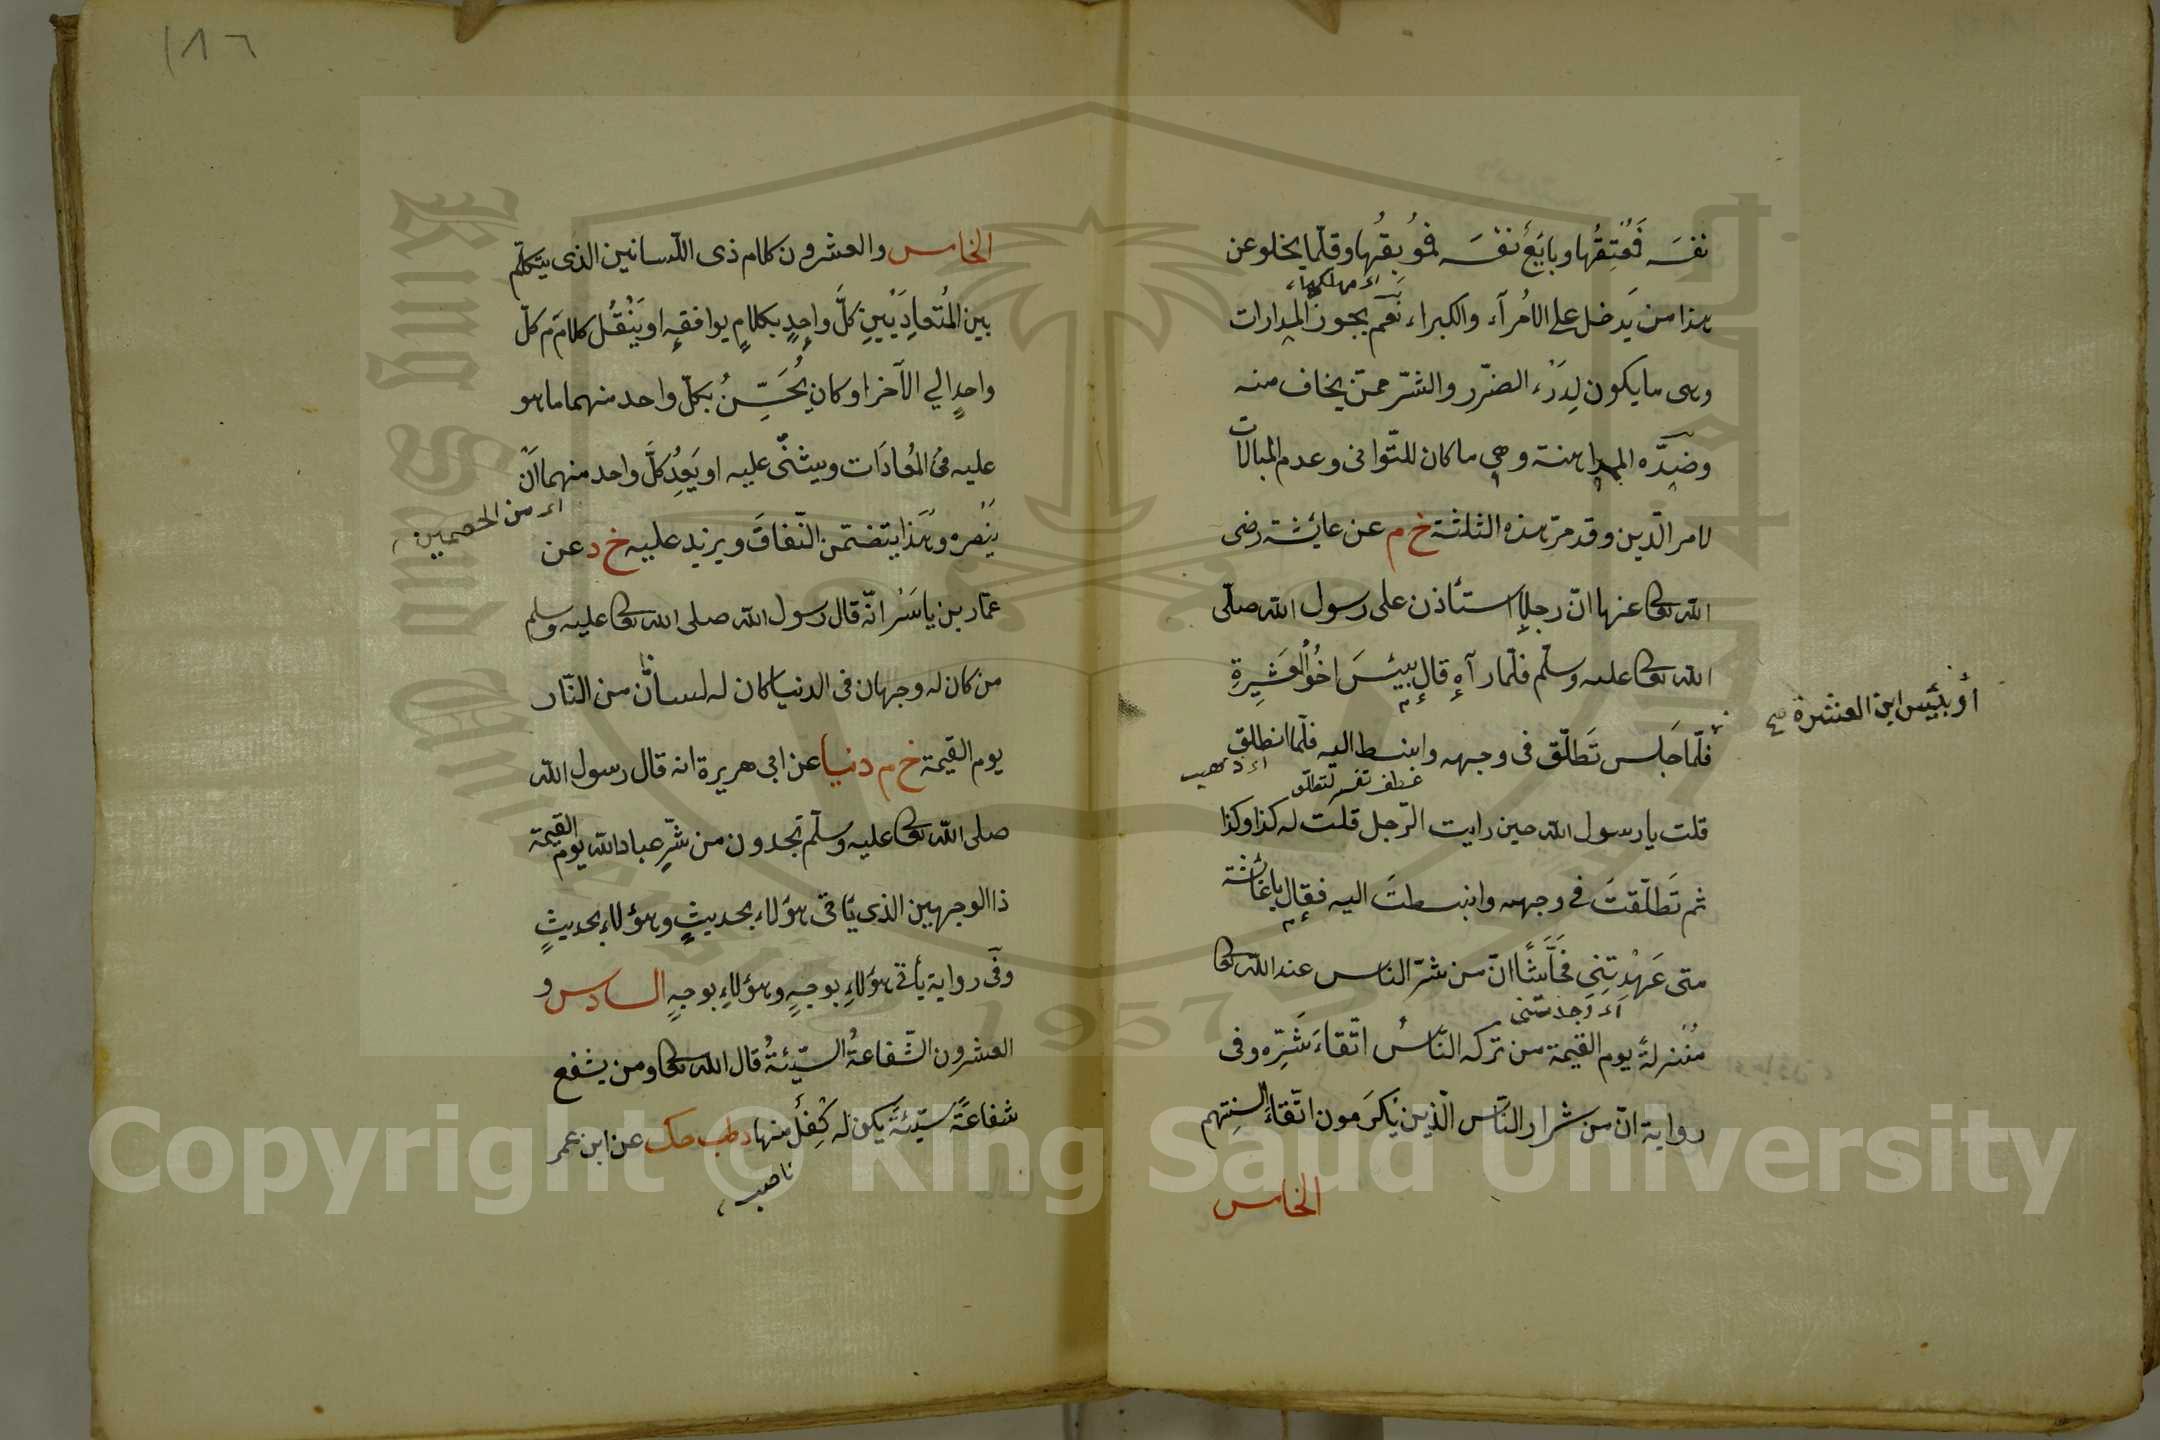 نفسَه فَمُعتِقُها وبايَعَ نفسَه فمُوبِقُها وقلّما يخلو عن
اى مهلكها
هذا من يَدخل على الاُمرآء والكبراء نَعَم يجوز المدارات
وهى ما يكون لِدَرْء الضّرر والشرّ ممّن يخاف منه
وضدّه المداهنة وهى ما كان للتّوانى وعدم المبالات
لامر الدّين وقد مرّ هذه الثلثة خ م عن عايشة رضى
الله تعالى عنها انّ رجلا استأذن على رسول الله صلّى
الله تعالى عليه وسلّم فلمّا رآه قال بِئسَ اخُو العَشِيرةِ
أو بئيس ابن العشرة
فلمّا جَلس تَطلّق فى وجهه وانبسط اليه فلمّا انطلق
عطف تفسير لتطلّق
اى ذهب
قلت يا رسول الله حين رايت الرّجل قلت له كذا وكذا
ثم تَطلّقتَ فى وجهه وانبسطتَ اليه فقال يا عائشة
متى عَهِدْتِنِى فَحَّاشًا انّ من شرّ الناس عند الله تعالى
اى وجدتنى
مَنزلةً يوم القيمة من تركه النّاسُ اتّقاءَ شَرِّه وفى
رواية انّ من شرار النّاس الّذين يُكرَمون اتّقاءَ السِنتِهم
الخامس
١٨٦
الخامس والعشرون كلام ذى اللّسانين الذى يتكلّم
بين المُتعادِيَيْنِ كلَّ واحِدٍ بكلامٍ يوافقه او يَنْقُل كلامَ كلّ
واحدٍ الى الآخر او كان يُحَسِّنُ بكلّ واحد منهما ما هو
عليه فى المُعادَات ويثنى عليه او يَعِدُ كلَّ واحد منهما ان
اى من الخصمين
يَنْصره وهَذا يتضمّن النّفاقَ ويزيد عليه خ د عن
عمّار بن ياسَر انّه قال رسول الله صلى الله تعالى عليه وسلم
من كان له وجهان فى الدنيا كان له لسانان من النّار
يوم القيمة خ م دنيا عن ابى هريرة انه قال رسول الله
صلى الله تعالى عليه وسلّم تجدون من شَرِّ عباد الله يوم القيمة
ذا الوجهين الذى يَأتى هؤلاء بحديثٍ وهؤلاء بحديثٍ
وفى رواية يأتى هؤلاءِ بوجهٍ وهؤلاءِ بوجهٍ السادس و
العشرون الشّفاعةُ السّيّئةُ قال الله تعالى ومن يشفع
شفاعَةً سيّئةً يكن له كِفْلٌ منها د طب حك عن ابن عمر
ناصب
Copyright © King Saud University
King Saud University
1957